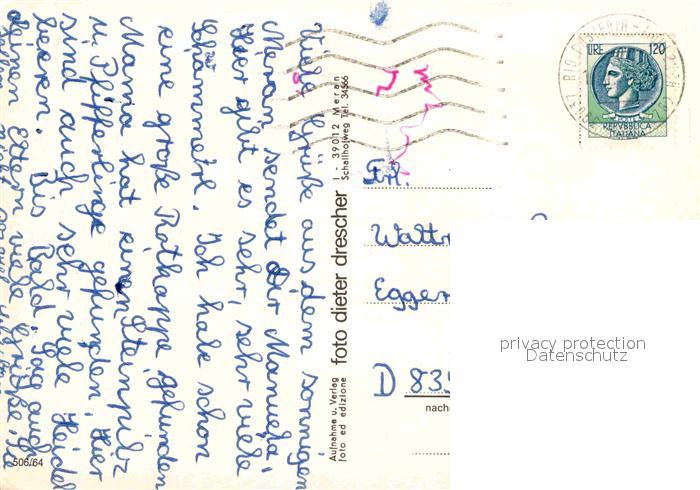 Viele Grüße aus dem sonnigen
Meran sendet Dir Manuela.
Hier gibt es sehr, sehr viele
Schwammerl. Ich habe schon
eine große Rotkappe gefunden
Mama hat einen Steinpilz
u. Pfifferlinge gefunden. Hier
sind auch sehr viele Heidel
beeren. Bis bald. Sag auch
deinen Eltern viele Grüße. Sie
506/64
Aufnahme u. Verlag
foto ed edizione
foto dieter drescher
I - 39012 Meran
Schallhofweg Tel. 34566
LIRE 120
REPVBBLICA
ITALIANA
Frl.
Waltr
Egger
D 839
nache
privacy protection
Datenschutz